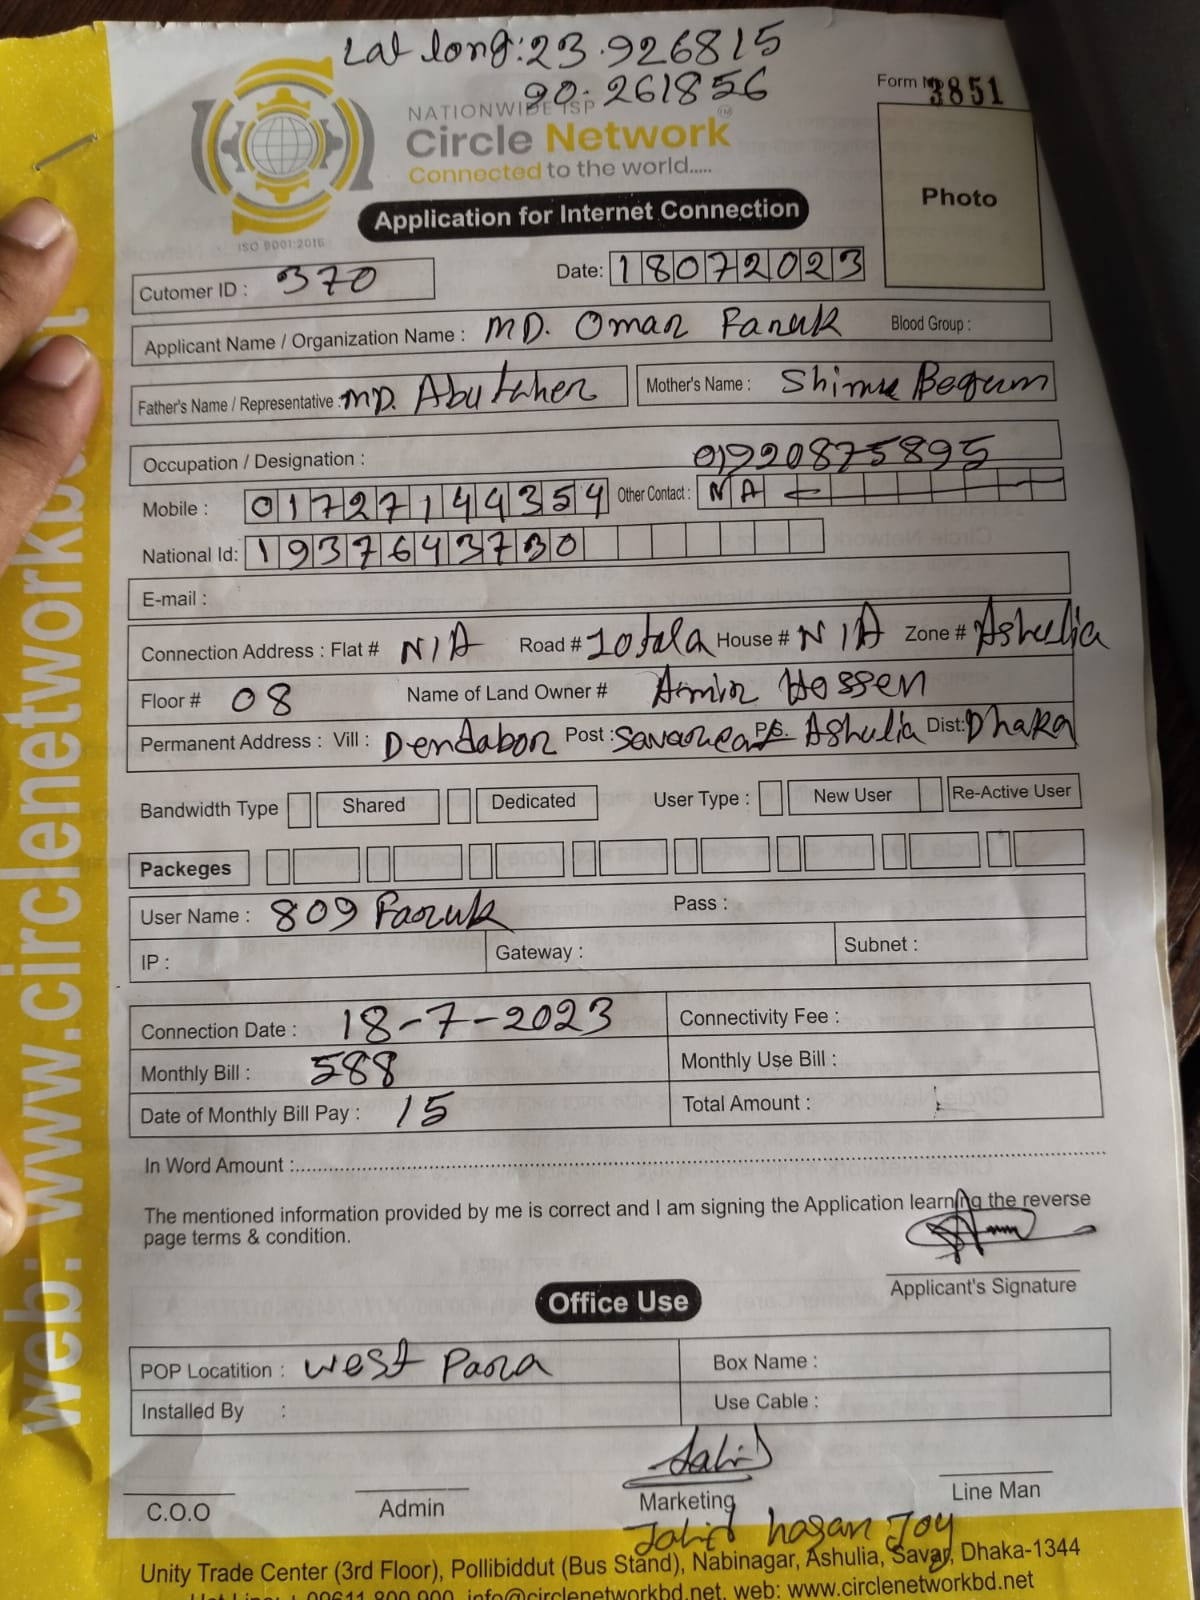 Lat long: 23.926815
90.261856
Form No 3851
NATIONWIDE ISP
Circle Network
Connected to the world.....
ISO 9001:2015
Photo
Application for Internet Connection
Cutomer ID : 370
Date: 18072023
Applicant Name / Organization Name : MD. Omar Faruk Blood Group :
Father's Name / Representative : MD. Abu taher Mother's Name : Shimu Begum
Occupation / Designation : 01920875895
Mobile : 01727144354 Other Contact : N A
National Id: 1937643730
E-mail :
Connection Address : Flat # N/A Road # 10 tala House # N/A Zone # Ashulia
Floor # 08 Name of Land Owner # Amir Hossen
Permanent Address : Vill : Dendabor Post : P.S. Ashulia Dist: Dhaka
Bandwidth Type Shared Dedicated User Type : New User Re-Active User
Packeges
User Name : 809 Faruk Pass :
IP : Gateway : Subnet :
Connection Date : 18-7-2023 Connectivity Fee :
Monthly Bill : 588 Monthly Use Bill :
Date of Monthly Bill Pay : 15 Total Amount :
In Word Amount :
The mentioned information provided by me is correct and I am signing the Application learning the reverse
page terms & condition.
Applicant's Signature
Office Use
POP Locatition : West Para Box Name :
Installed By : Use Cable :
Jahid
C.O.O Admin Marketing Line Man
Jahid hasan Joy
Unity Trade Center (3rd Floor), Pollibiddut (Bus Stand), Nabinagar, Ashulia, Savar, Dhaka-1344
Hot Line: + 09611 800 900, info@circlenetworkbd.net, web: www.circlenetworkbd.net
web: www.circlenetworkbd.net